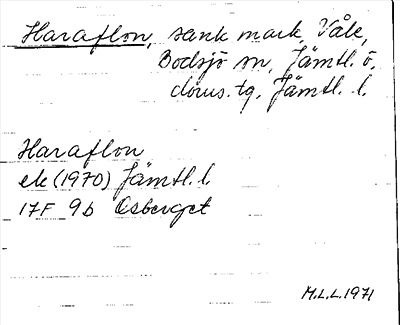 Haraflon, sank mark, Våle,
Bodsjö sn, Jämtl. ö.
doms. tg, Jämtl. l.
Haraflon
ek (1970) Jämtl. l.
17F 9b Åsberget
M.L.L. 1971